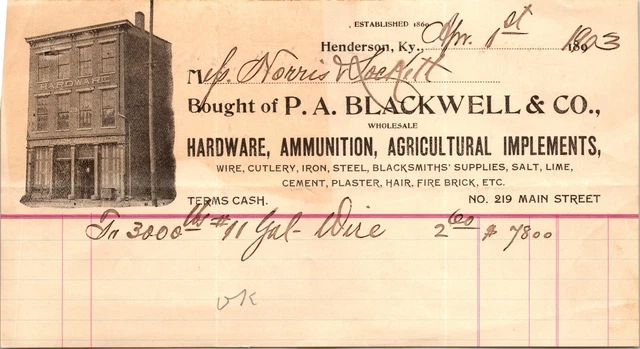 ESTABLISHED 1869
Henderson, Ky., Apr. 1st 1903
HARDWARE
Mess. Norris & Lockett
Bought of P. A. BLACKWELL & CO.,
WHOLESALE
HARDWARE, AMMUNITION, AGRICULTURAL IMPLEMENTS,
WIRE, CUTLERY, IRON, STEEL, BLACKSMITHS' SUPPLIES, SALT, LIME,
CEMENT, PLASTER, HAIR, FIRE BRICK, ETC.
TERMS CASH. NO. 219 MAIN STREET
To 3000 lbs #11 Gal- Wire 2 60 $ 78 00
OK